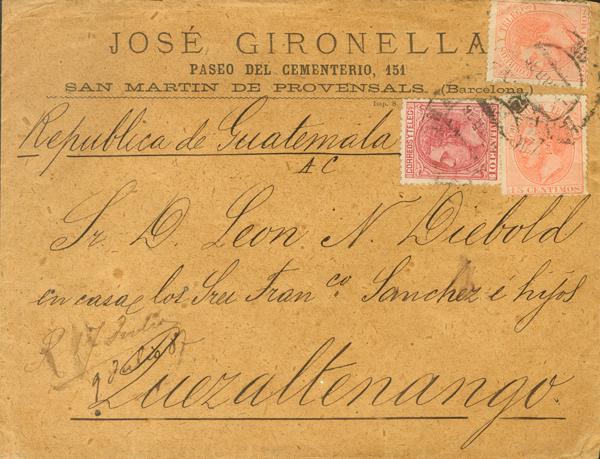 JOSÉ GIRONELLA
PASEO DEL CEMENTERIO, 151
SAN MARTIN DE PROVENSALS. (Barcelona.)
Imp. S
Republica de Guatemala
A C
CORREOS Y TELEGS
10 CENTIMOS
15 CENTIMOS
Sr. D. Leon N. Diebold
en casa de los Sres Fran.co Sanchez é hijos
R 17 Julio
9 Julio 87
Quezaltenango.